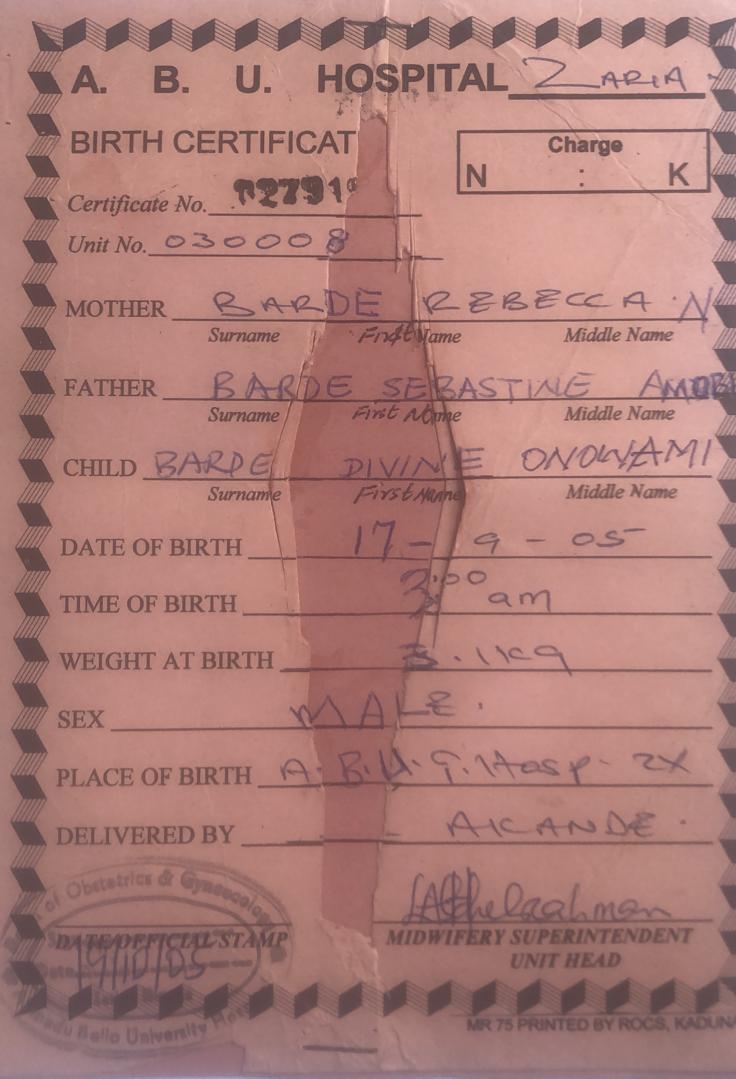 A. B. U. HOSPITAL ZARIA
BIRTH CERTIFICAT
Charge
N : K
Certificate No.
Unit No. 030008
MOTHER BARDE REBECCA N
Surname First Name Middle Name
FATHER BARDE SEBASTINE AMOBI
Surname First Name Middle Name
CHILD BARDE DIVINE ONOWAMI
Surname First Name Middle Name
DATE OF BIRTH 17 - 9 - 05
TIME OF BIRTH 3:00 am
WEIGHT AT BIRTH 3.1kg
SEX MALE.
PLACE OF BIRTH A.B.U.T.Hosp. ZX
DELIVERED BY AKANDE.
of Obstetrics & Gynaecology
DATE/OFFICIAL STAMP
19/10/05
MIDWIFERY SUPERINTENDENT
UNIT HEAD
Bello University
MR 75 PRINTED BY ROCS, KADUNA